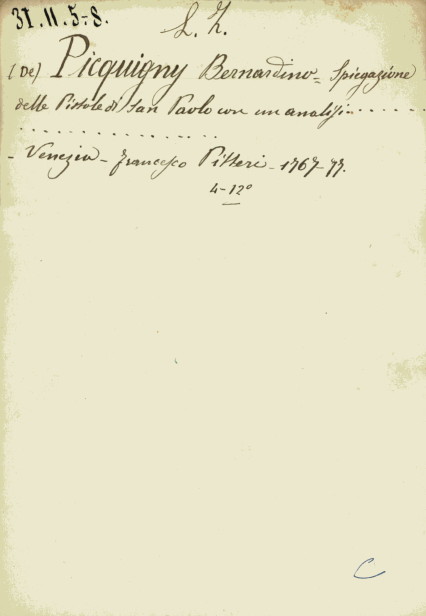 31.11.5-8.
L. Z.
(De) Picquigny Bernardino = Spiegazione
delle Pistole di San Paolo con un analisi - . . . . . . . .
. . . . . . . . . . . . . . .
- Venezia - Francesco Pitteri - 1767-77.
4-12°
C